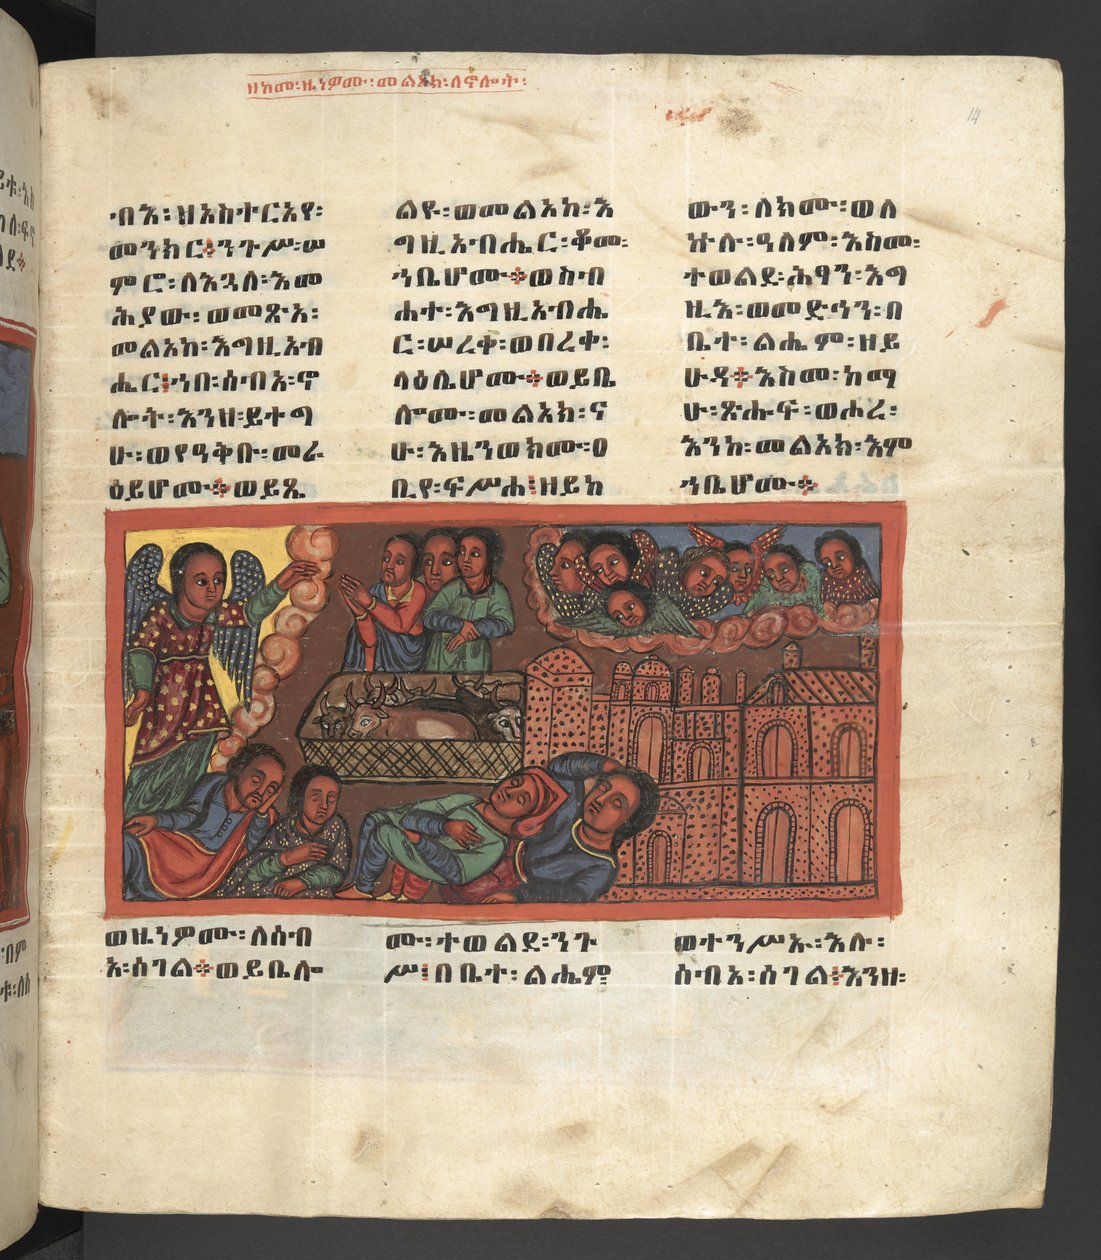 ዘከመ፡ዜነዎሙ፡መልአክ፡ለኖሎት፡
14
ብእ፡ዘአስተርአየ፡
መንክር፡ንጉሥ፡ሠ
ምሮ፡ለእጓለ፡እመ
ሕያው፡ወመጽአ፡
መልአከ፡እግዚአብ
ሔር፡ኀበ፡ሰብአ፡ኖ
ሎት፡እንዘ፡ይተግ
ሁ፡ወየዓቅቡ፡መራ
ዕይሆሙ፨ወይቤ
ልዩ፡ወመልአከ፡እ
ግዚአብሔር፡ቆመ፡
ኀቤሆሙ፨ወስብ
ሐተ፡እግዚአብሔ
ር፡ሠረቀ፡ወበረቀ፡
ላዕሌሆሙ፨ወይቤ
ሎሙ፡መልአክ፡ና
ሁ፡እዜንወክሙ፡ዐ
ቢየ፡ፍሥሐ፡ዘይከ
ውን፡ለክሙ፡ወለ
ኵሉ፡ዓለም፡እስመ፡
ተወልደ፡ሕፃን፡እግ
ዚእ፡ወመድኅን፡በ
ቤተ፡ልሔም፡ዘይ
ሁዳ፨እስመ፡ከማ
ሁ፡ጽሑፍ፡ወሖረ፡
እንከ፡መልአክ፡እም
ኀቤሆሙ፨
ወዜነዎሙ፡ለሰብ
አ፡ሰገል፨ወይቤሎ
ሙ፡ተወልደ፡ንጉ
ሥ፡በቤተ፡ልሔም
ወተንሥኡ፡እሉ፡
ሰብአ፡ሰገል፡እንዘ፡